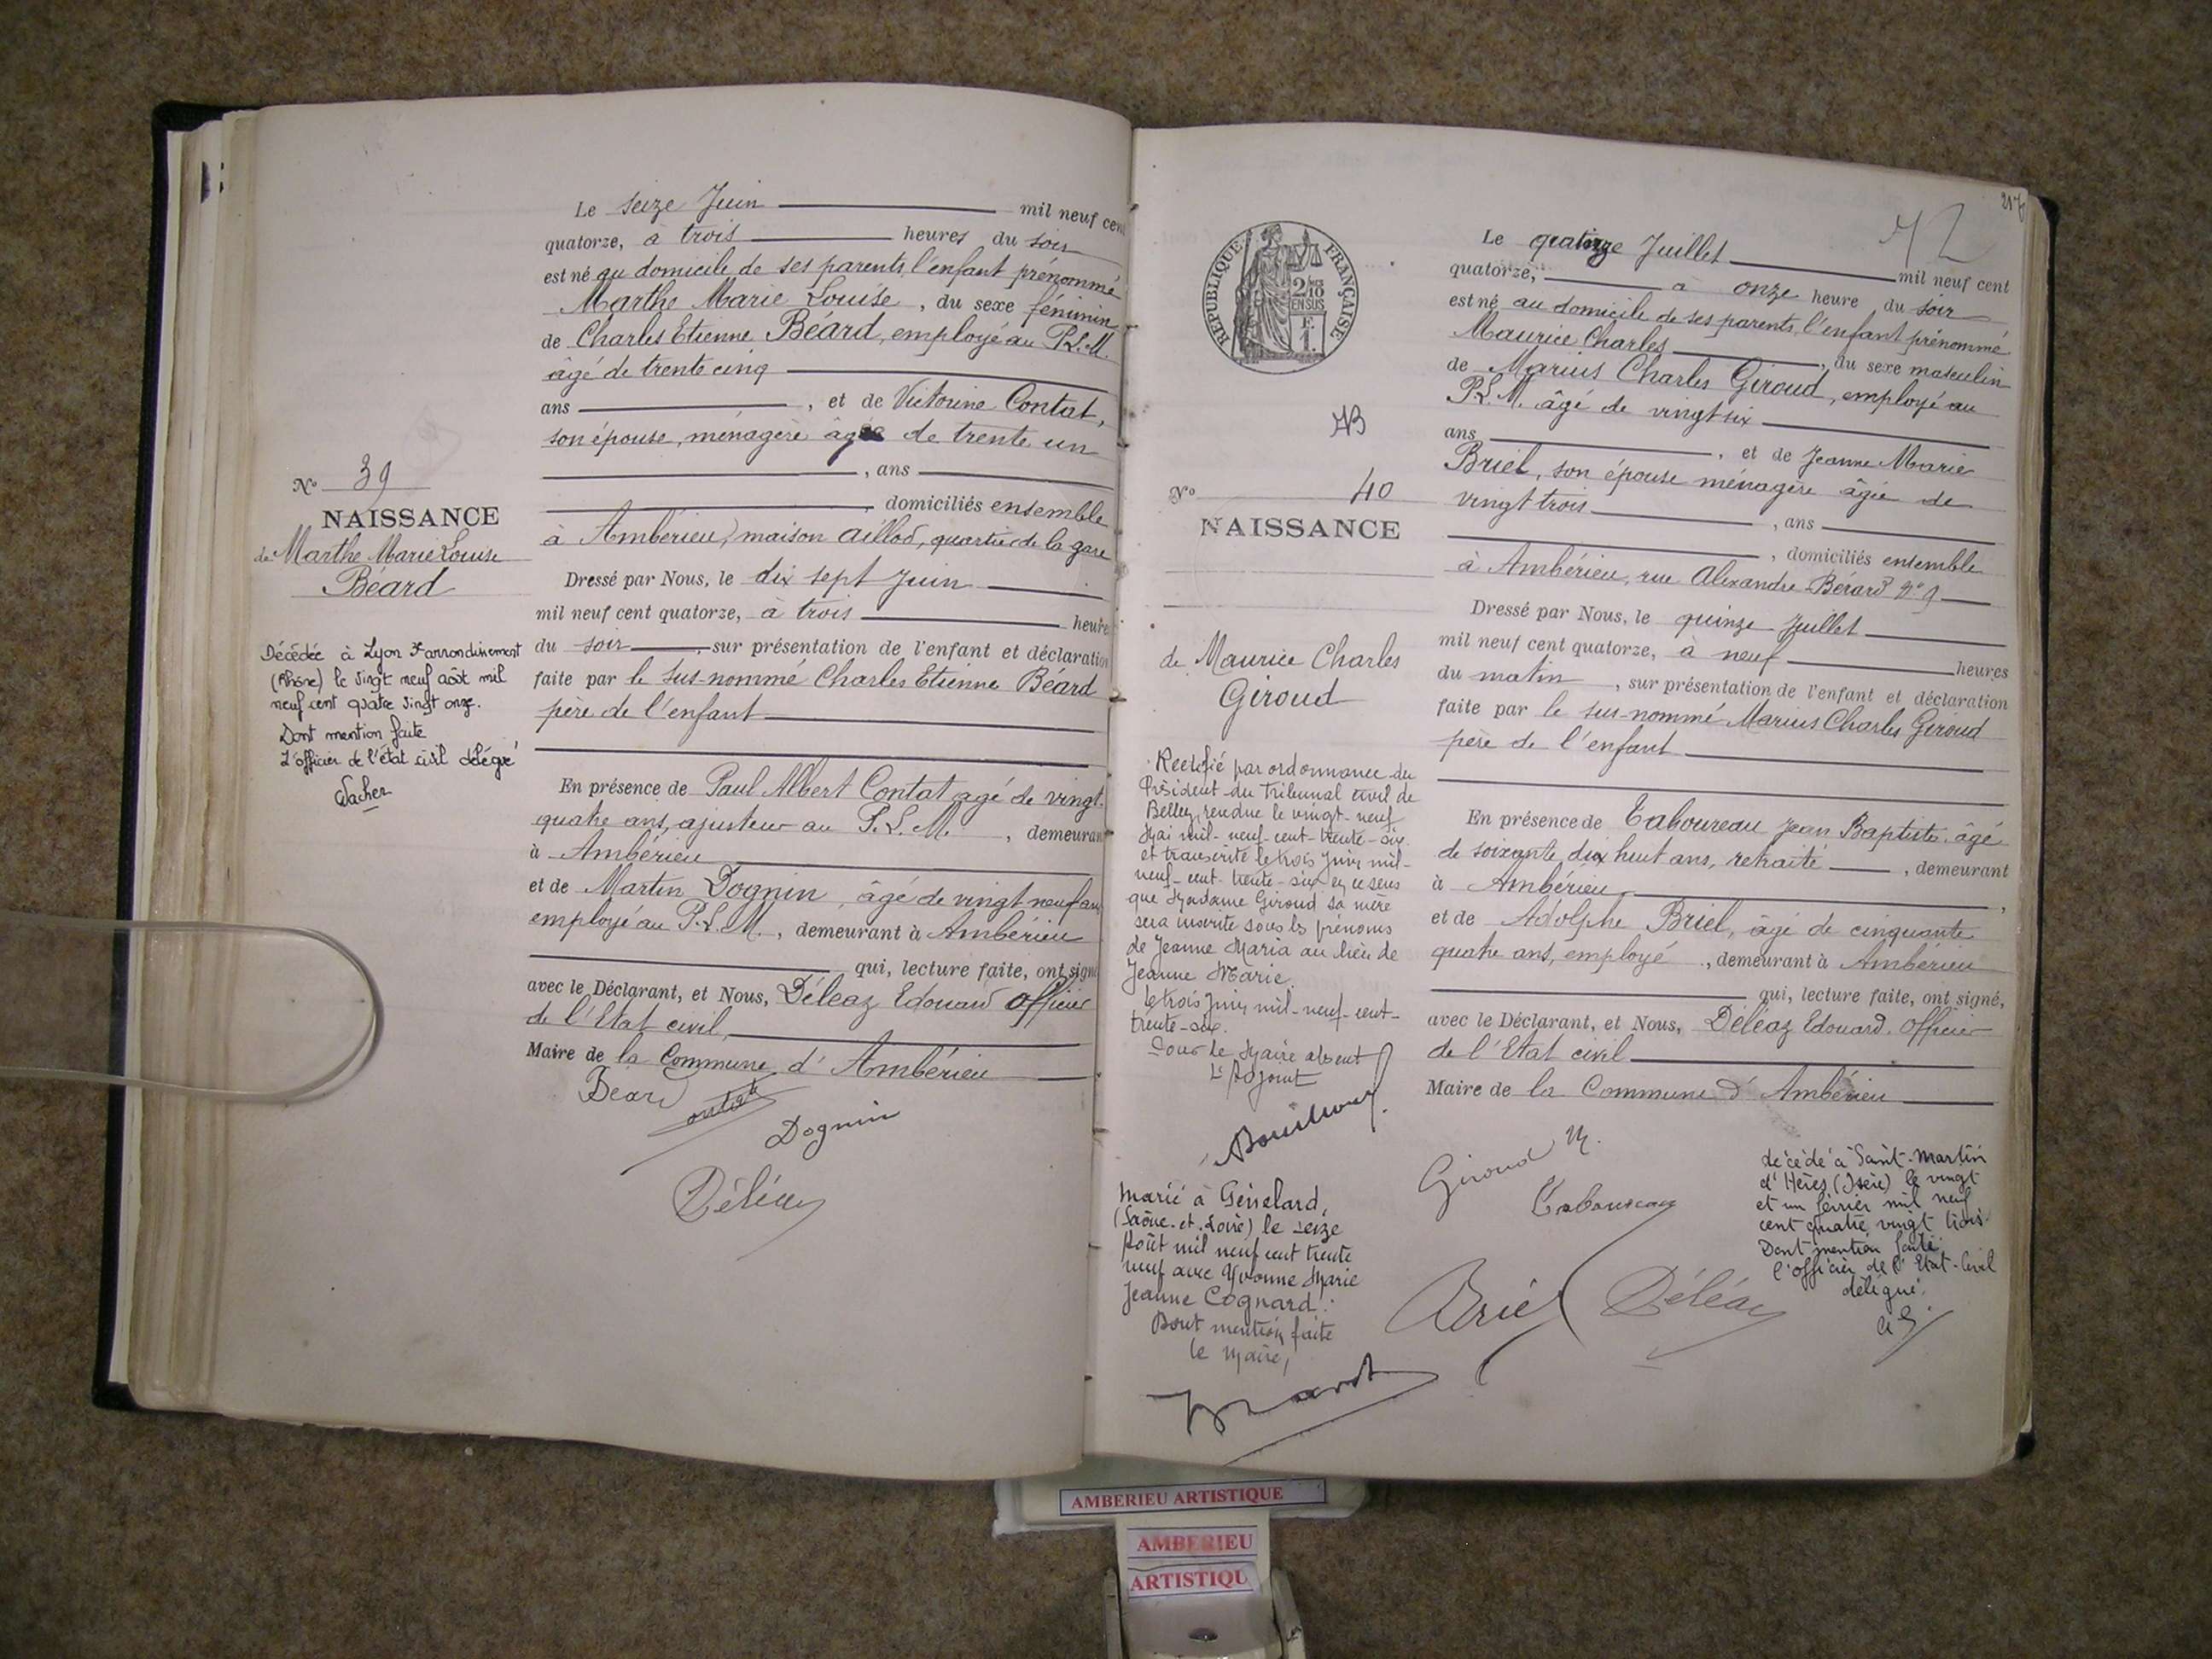 Le seize Juin mil neuf cent
quatorze, à trois heures du soir
est né au domicile de ses parents, l'enfant prénommé
Marthe Marie Louise, du sexe féminin
de Charles Etienne Béard, employé au P.L.M.
âgé de trente cinq
ans, et de Victorine Contat,
son épouse, ménagère âgée de trente un
, ans
, domiciliés ensemble
à Ambérieu, maison Aillod, quartier de la gare
Dressé par Nous, le dix sept Juin
mil neuf cent quatorze, à trois heures
du soir, sur présentation de l'enfant et déclaration
faite par le sus-nommé Charles Etienne Béard
père de l'enfant
En présence de Paul Albert Contat agé de vingt-
quatre ans, ajusteur au P.L.M., demeurant
à Ambérieu
et de Martin Dognin, âgé de vingt neuf ans
employé au P.L.M., demeurant à Ambérieu
qui, lecture faite, ont signé
avec le Déclarant, et Nous, Déléaz Edouard Officier
de l'Etat civil,
Maire de la Commune d'Ambérieu
Béard
Contat
Dognin
Déléaz
No 39
NAISSANCE
de Marthe Marie Louise
Béard
Décédée à Lyon 3e arrondissement
(Rhône) le vingt neuf août mil
neuf cent quatre vingt onze.
Dont mention faite
L'officier de l'état civil délégué
217
REPUBLIQUE FRANÇAISE
2/10
EN SUS
F.
1.
No 40
NAISSANCE
de Maurice Charles
Giroud
Rectifié par ordonnance du
Président du Tribunal civil de
Belley, rendue le vingt-neuf
Mai mil-neuf-cent-trente-six
et transcrite le trois Juin mil-
neuf-cent-trente-six en ce sens
que Madame Giroud sa mère
sera inscrite sous les prénoms
de Jeanne Maria au lieu de
Jeanne Marie.
Le trois Juin mil-neuf-cent-
trente-six.
Pour le Maire absent
L'Adjoint
Marié à Génelard,
(Saône-et-Loire) le seize
Août mil neuf cent trente
neuf avec Yvonne Marie
Jeanne Cognard.
Dont mention faite
Le Maire,
Le quatorze Juillet mil neuf cent
quatorze, à onze heure du soir
est né au domicile de ses parents, l'enfant prénommé
Maurice Charles, du sexe masculin
de Marius Charles Giroud, employé au
P.L.M. âgé de vingt six
ans, et de Jeanne Marie
Briel, son épouse ménagère âgée de
vingt trois, ans
, domiciliés ensemble
à Ambérieu, rue Alexandre Bérard No 9
Dressé par Nous, le quinze Juillet
mil neuf cent quatorze, à neuf heures
du matin, sur présentation de l'enfant et déclaration
faite par le sus-nommé Marius Charles Giroud
père de l'enfant
En présence de Taboureau Jean Baptiste, âgé
de soixante dix huit ans, retraité, demeurant
à Ambérieu,
et de Adolphe Briel, âgé de cinquante
quatre ans, employé, demeurant à Ambérieu
qui, lecture faite, ont signé,
avec le Déclarant, et Nous, Déléaz Edouard, Officier
de l'Etat civil
Maire de la Commune d'Ambérieu
Giroud M.
Taboureau
Briel
Déléaz
décédé à Saint-Martin
d'Hères (Isère) le vingt
et un février mil neuf
cent quatre vingt trois.
Dont mention faite.
l'officier de l'Etat-Civil
délégué.
AMBERIEU ARTISTIQUE
AMBERIEU
ARTISTIQU